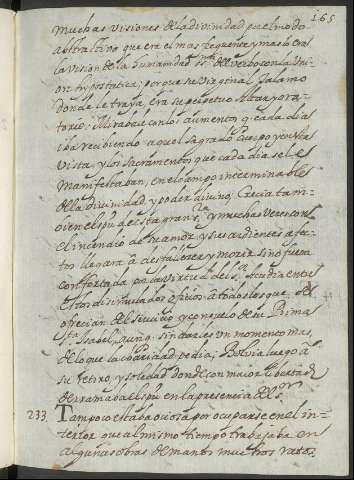 165
muchas visiones de la divinidad por el modo
abstractivo que era el mas frequente, y mas lo era
la vision de la humanidad SSma. del verbo con la uni
on hypostatica, por que su Virginal talamo
donde le traya, era su perpetuo Altar y ora
torio. Mirabale con los aumentos que cada dia
iba recibiendo aquel Sagrado Cuerpo y con la
vista, y los Sacramentos que cada dia se le
manifestaban, en el campo interminable
de la divinidad y poder divino, Crecia tam
bien el spu de esta gran Sra. y muchas veces con
el incendio de su amor y sus ardientes afec
tos llegara à desfallecer y morir si no fuera
confortada por la virtud del Sr. Acudia entre
estos disimulados oficios à todos los que se
ofrecian del servicio y consuelo de su Prima
Sta. Isabel, aunq. sin darles un momento mas,
de lo que la charidad pedia, Bolvia luego à
su retiro, y soledad donde con maior libertad
derramaba el spu en la presencia del Sor.
233. Tampoco estaba ociosa por ocuparse en el in
terior que al mismo tiempo trabajaba en
algunas obras de manos muchos ratos.